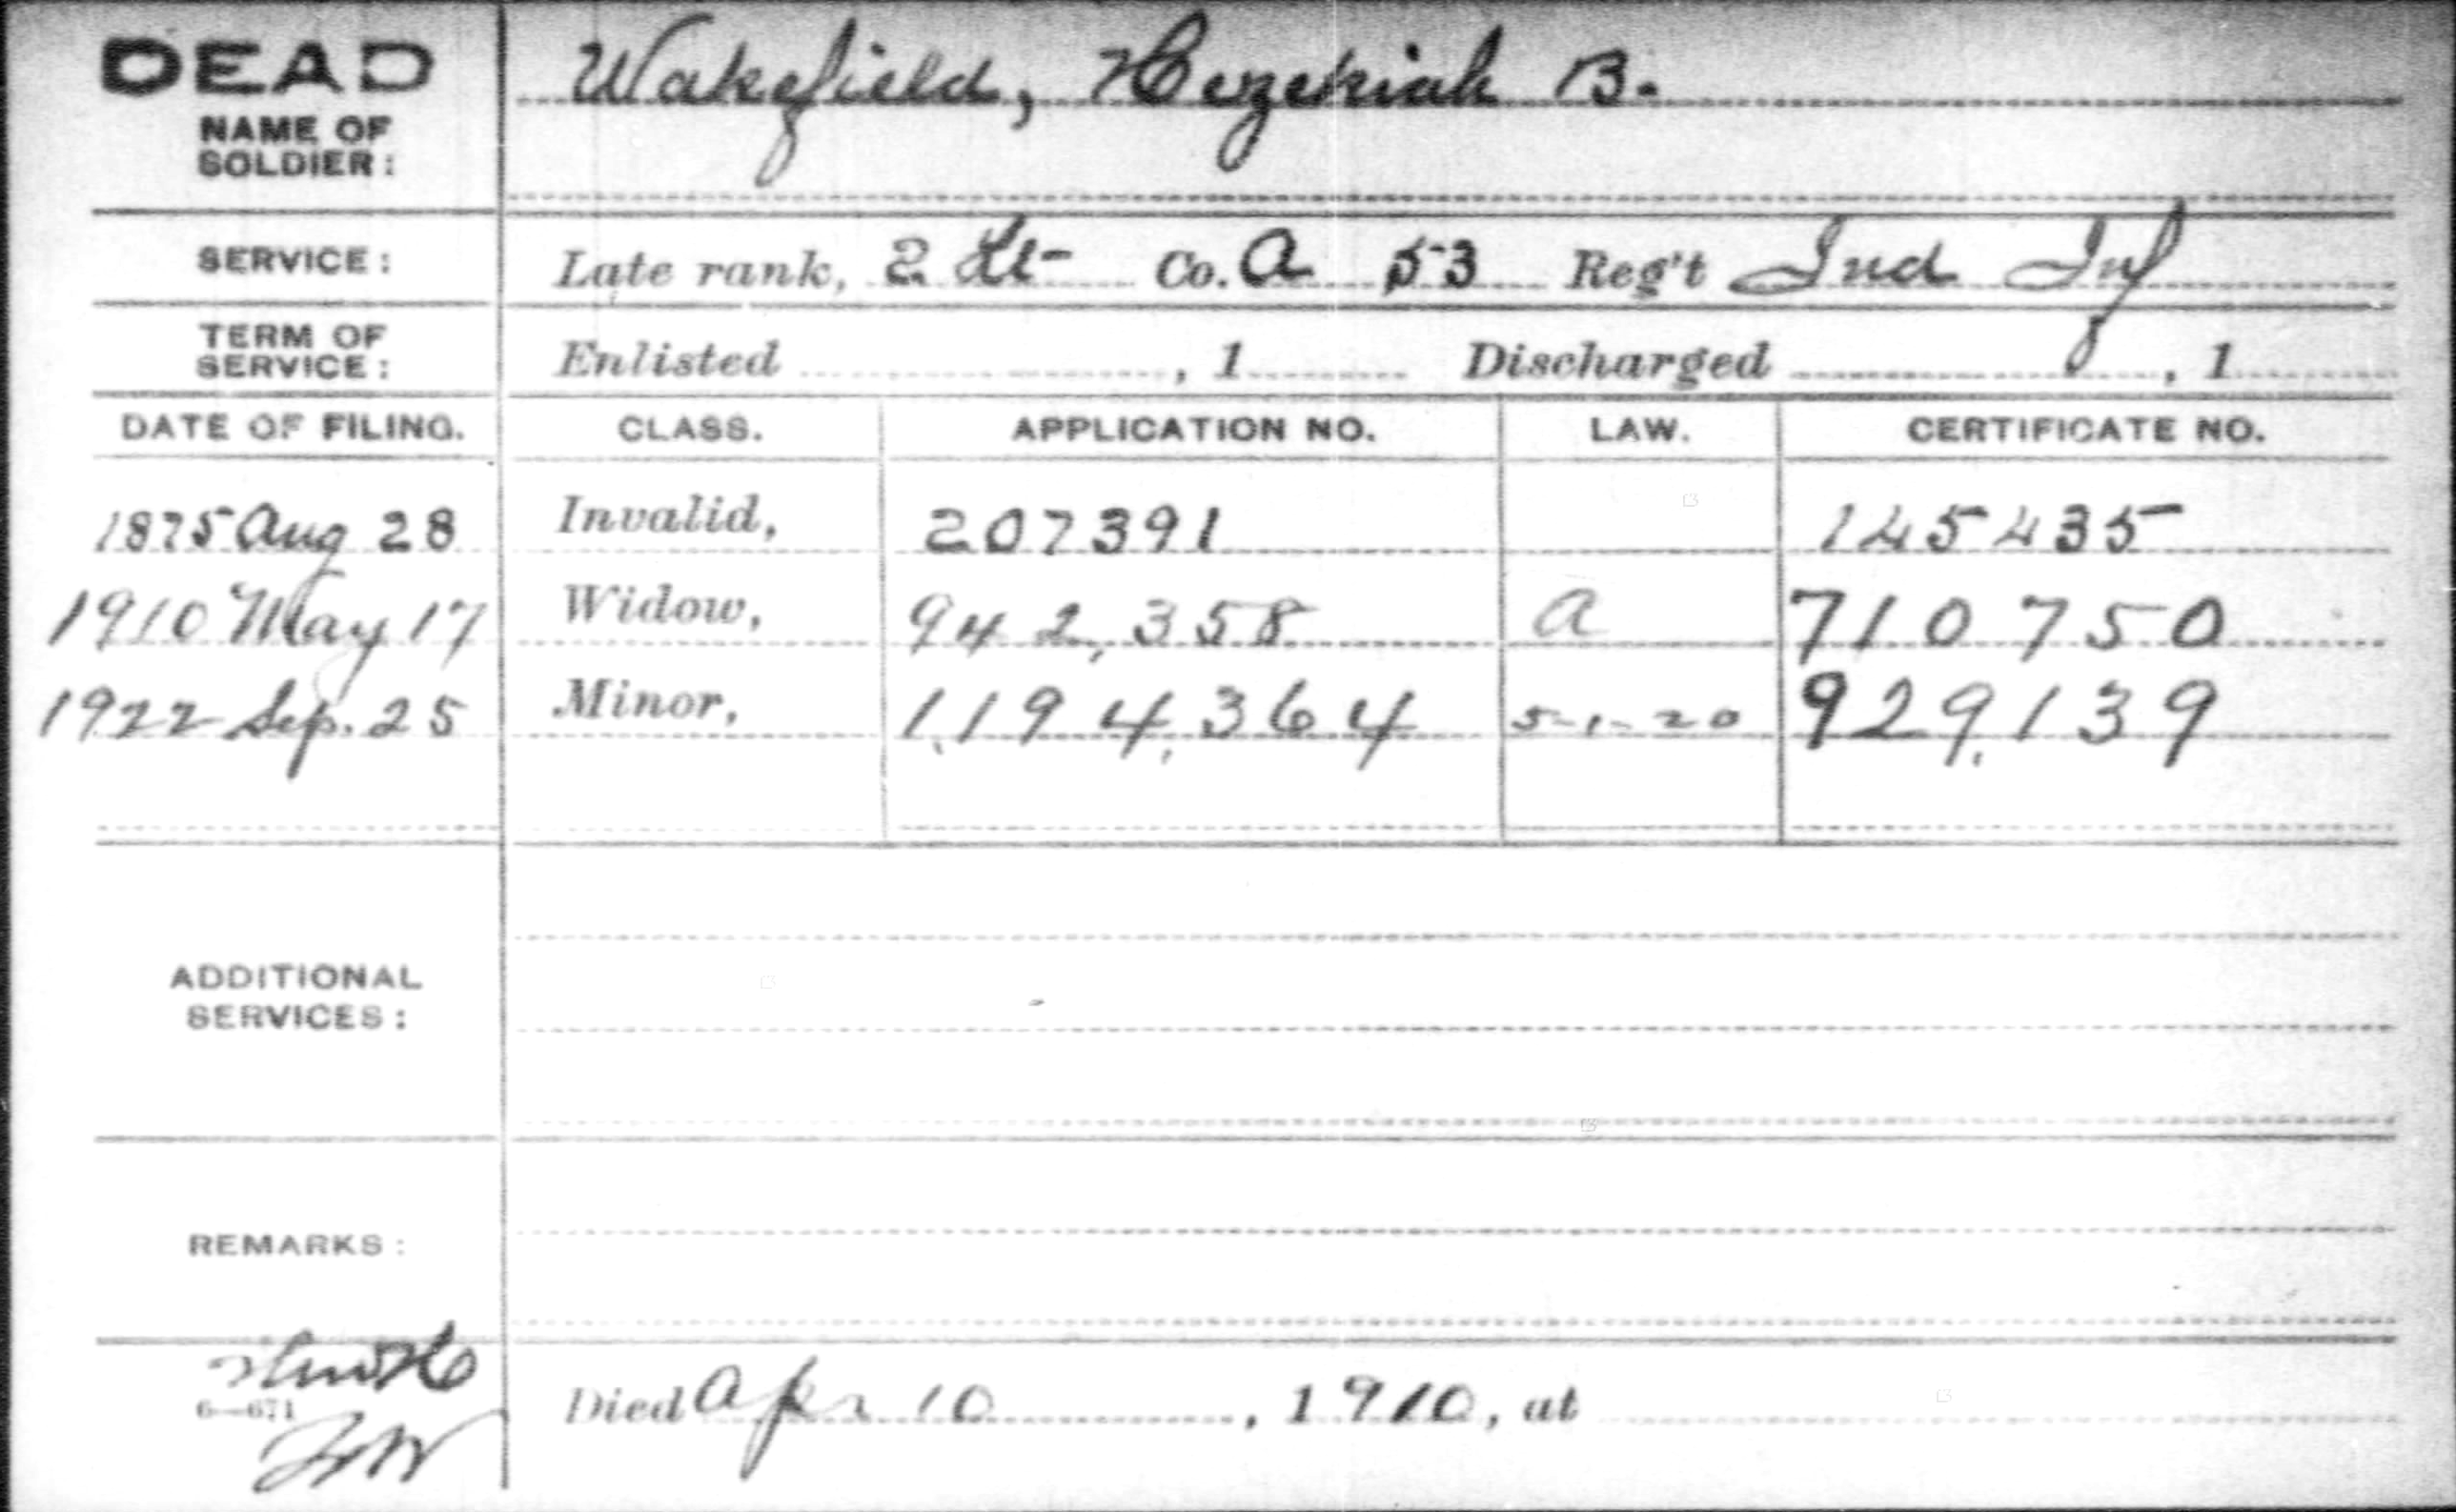 DEAD
NAME OF
SOLDIER:
Wakefield, Hezekiah B.
SERVICE: Late rank, 2 Lt- Co. A 53 Reg't Ind Inf
TERM OF
SERVICE: Enlisted , 1 Discharged , 1
DATE OF FILING. CLASS. APPLICATION NO. LAW. CERTIFICATE NO.
1875 Aug 28 Invalid, 207391 145435
1910 May 17 Widow, 942,358 A 710750
1922 Sep. 25 Minor, 1,194,364 5-1-20 929,139
ADDITIONAL
SERVICES:
REMARKS:
6—671
Died Apr 10 , 1910, at